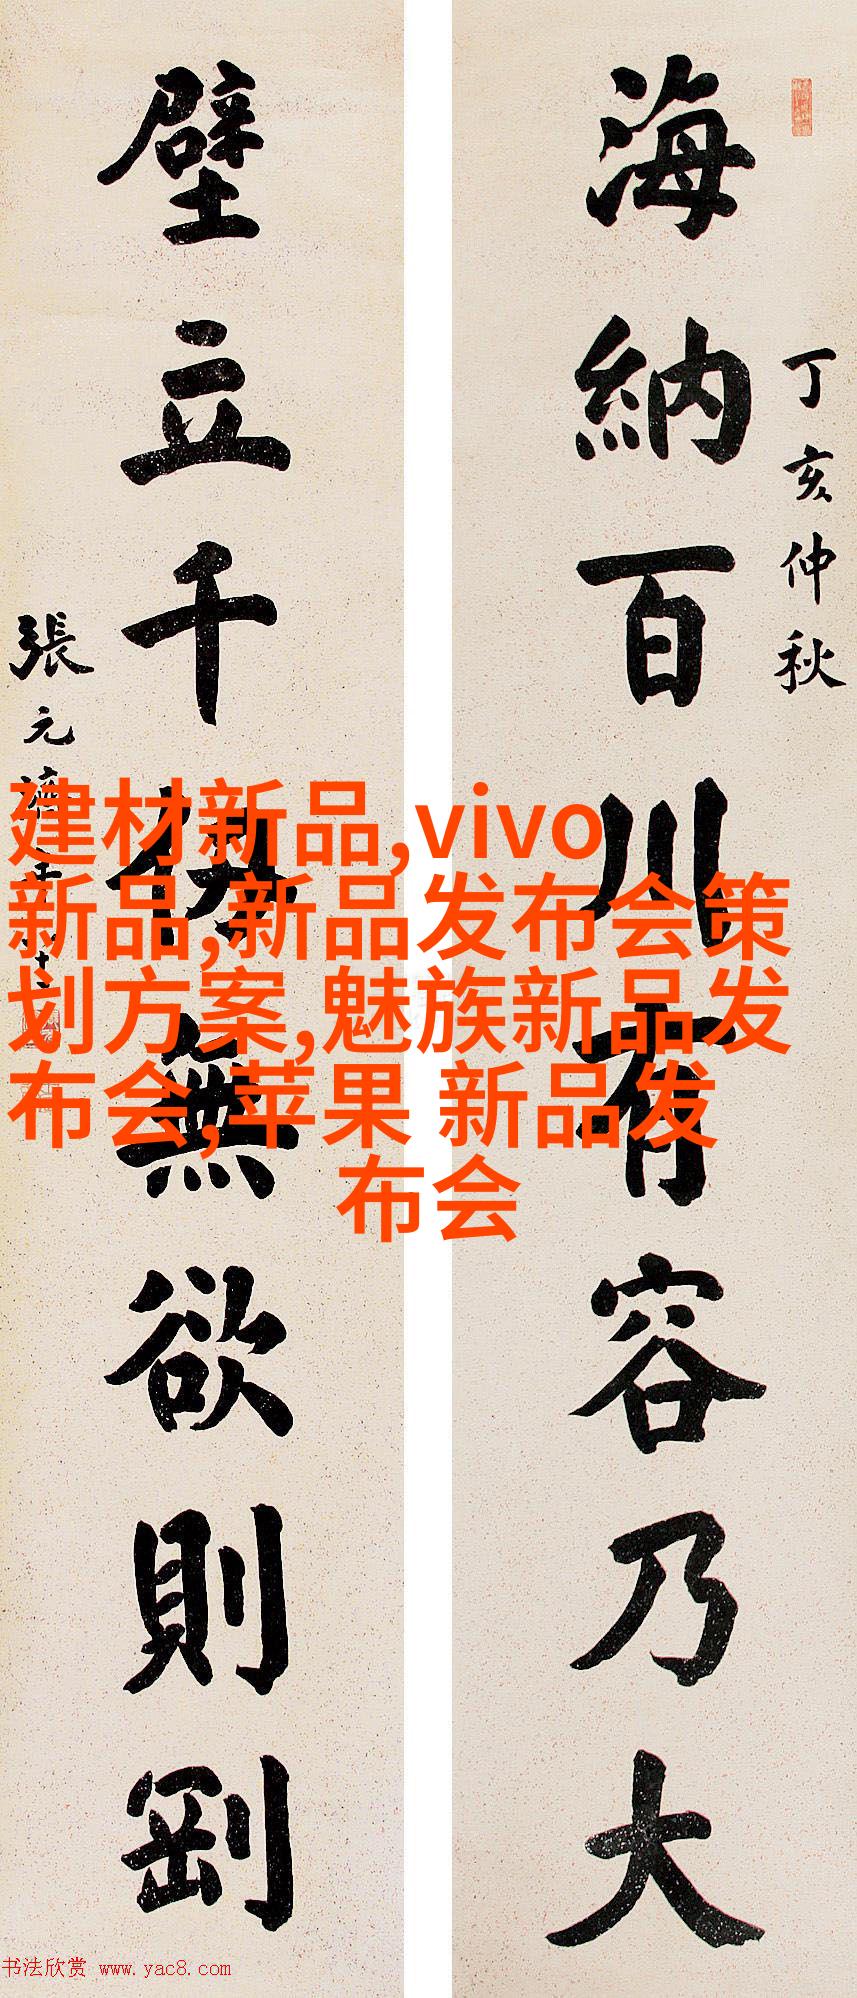 海納百川有容乃大
丁亥仲秋
壁立千仞無欲則剛
張元濟
建材新品,vivo
新品,新品发布会策
划方案,魅族新品发
布会,苹果 新品发
布会
书法欣赏 www.yac8.com